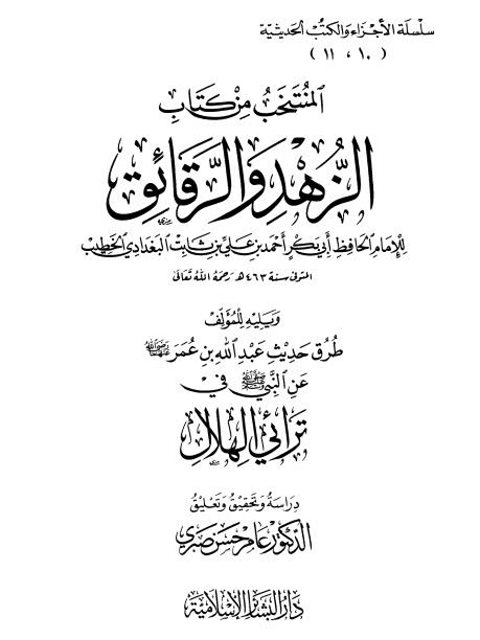 سلسلة الأجزاء والكتب الحديثية
( ١٠ ، ١١ )
المنتخب من كتاب
الزهد والرقائق
للإمام الحافظ أبي بكر أحمد بن علي بن ثابت البغدادي الخطيب
المتوفى سنة ٤٦٣ هـ رحمه الله تعالى
ويليه للمؤلف
طرق حديث عبد الله بن عمر
عن النبي ﷺ في
ترائي الهلال
دراسة وتحقيق وتعليق
الدكتور عامر حسن صبري
دار البشائر الإسلامية